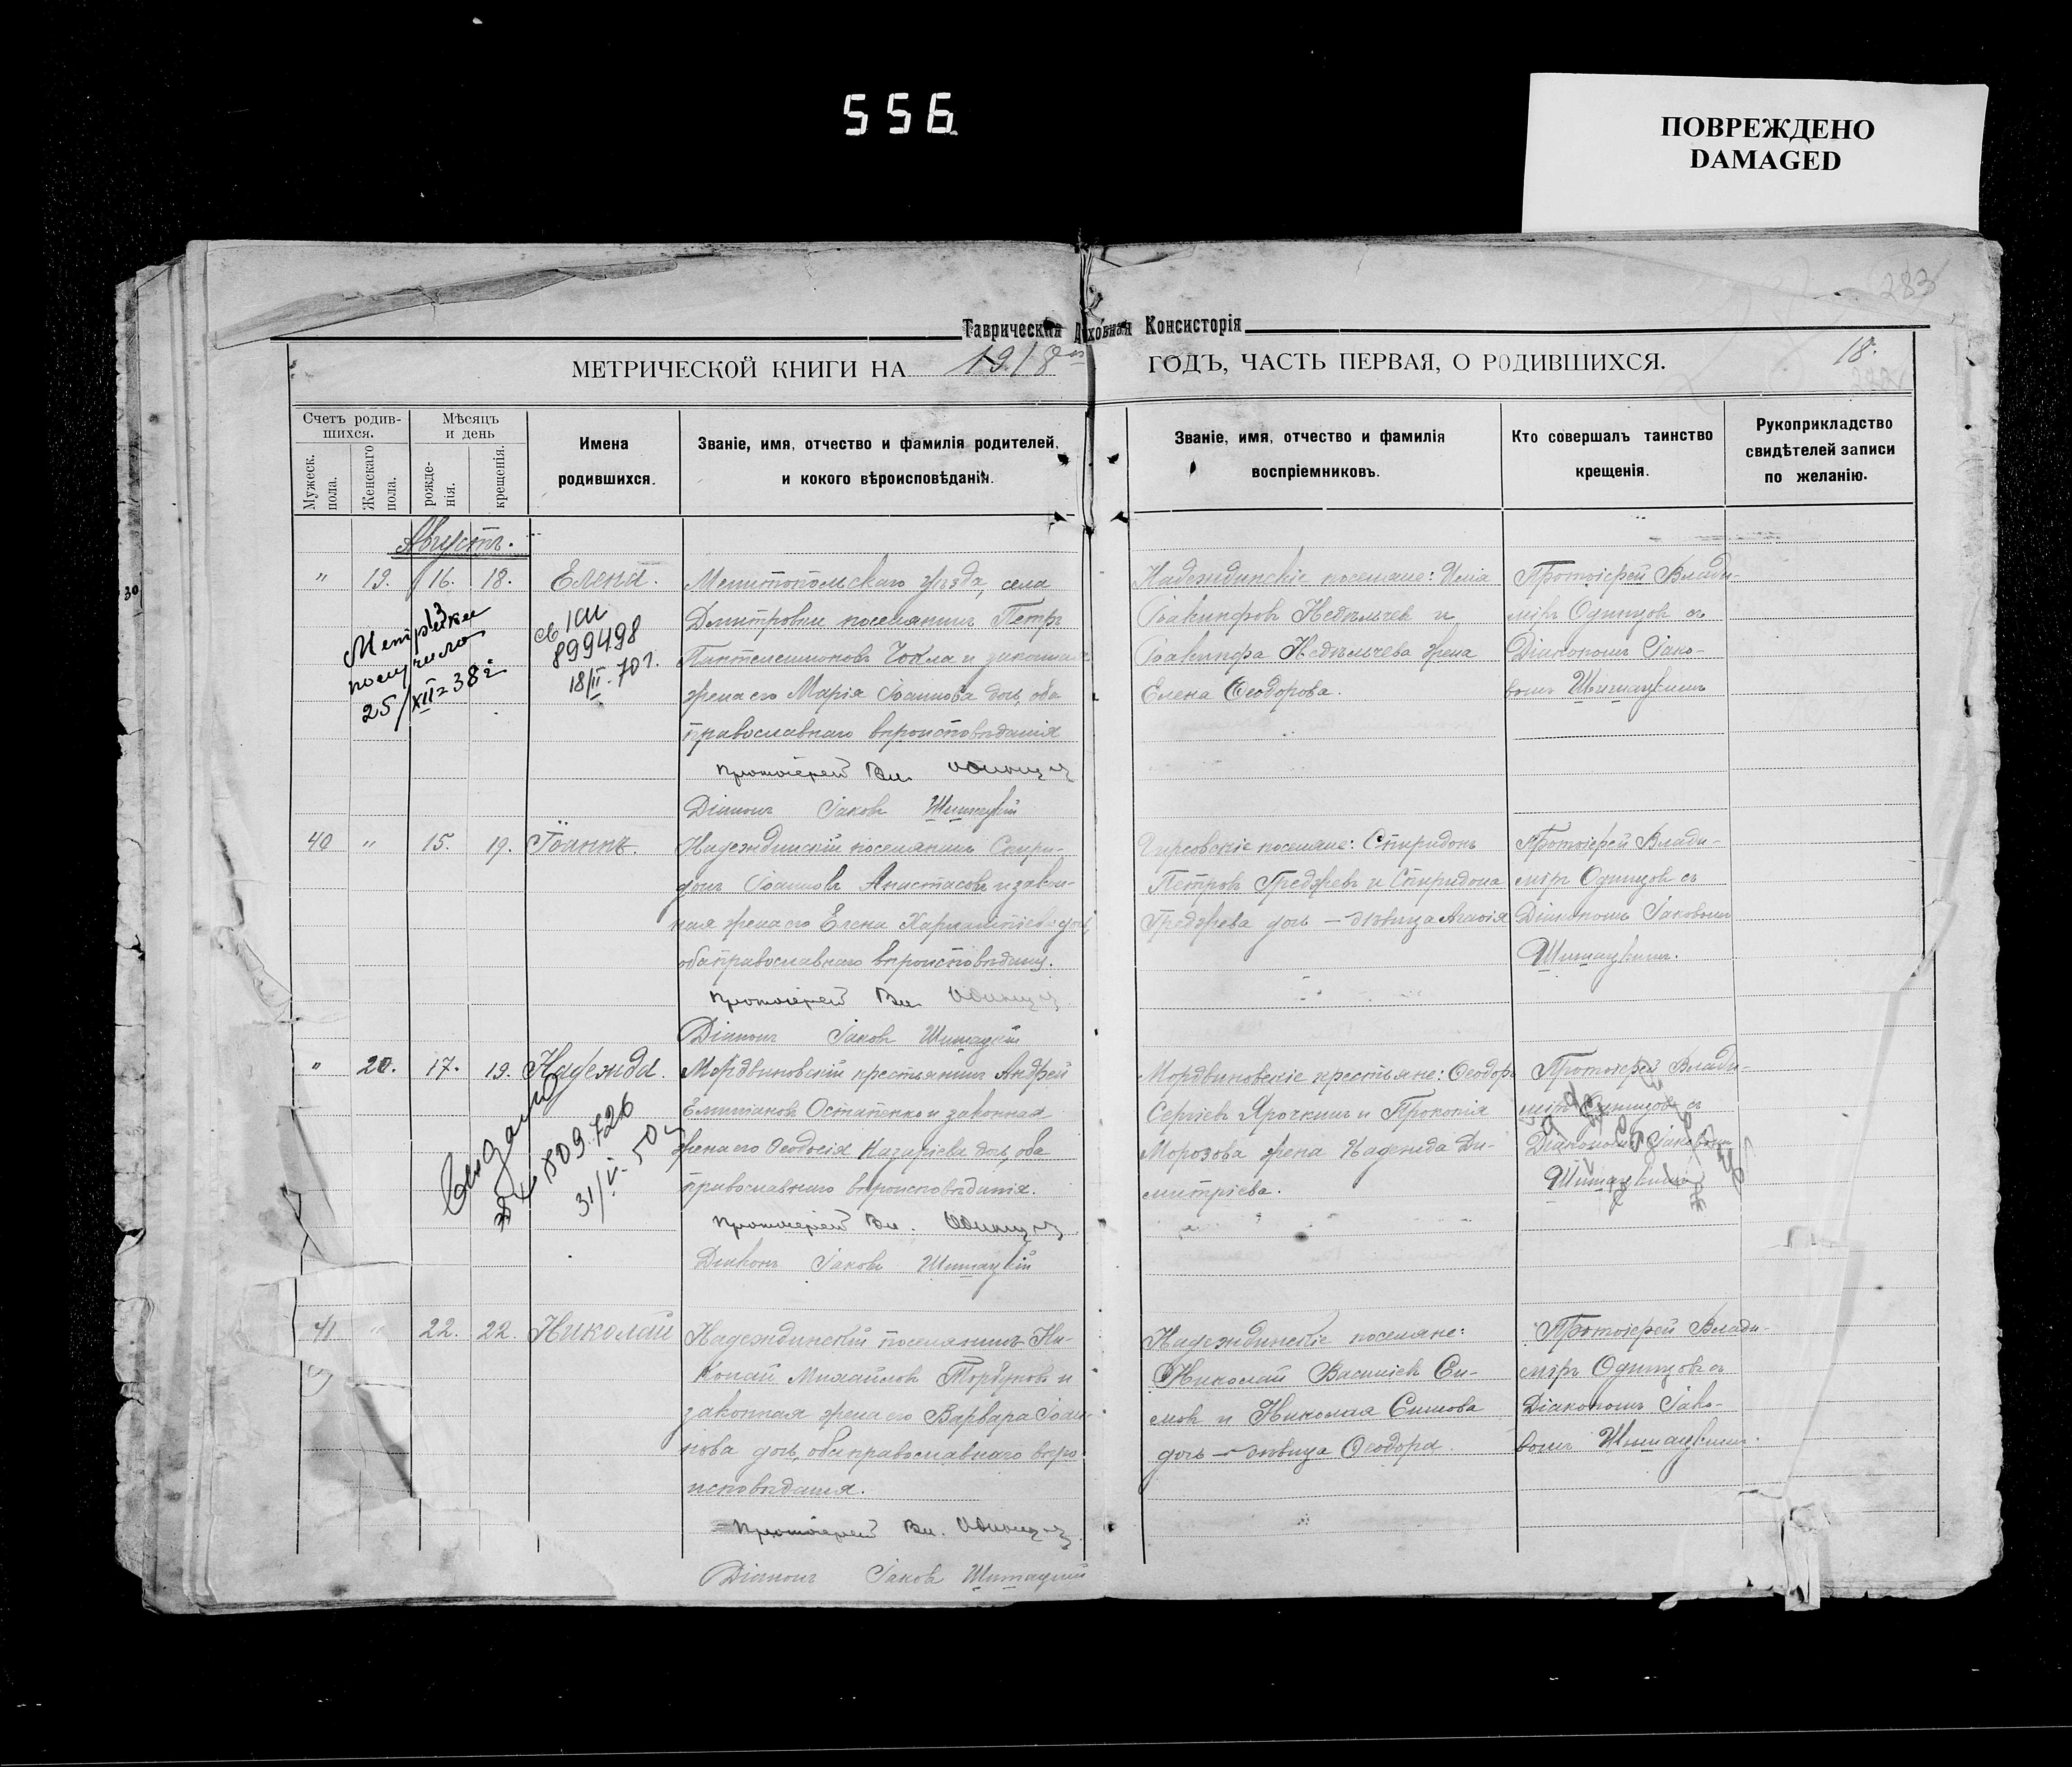 556
ПОВРЕЖДЕНО
DAMAGED
283
Таврическая Духовная Консисторія
МЕТРИЧЕСКОЙ КНИГИ НА 1918 ГОДЪ, ЧАСТЬ ПЕРВАЯ, О РОДИВШИХСЯ.
18.
Счетъ родив-
шихся.
Мужеск.
пола.
Женскаго
пола.
Мѣсяцъ
и день
рожде-
нія.
крещенія.
Имена
родившихся.
Званіе, имя, отчество и фамилія родителей,
и кокого вѣроисповѣданія.
Званіе, имя, отчество и фамилія
воспріемниковъ.
Кто совершалъ таинство
крещенія.
Рукоприкладство
свидѣтелей записи
по желанію.
30
Августъ.
" 19. 16. 18. Елена.
Мелитопольскаго уѣзда, села
Дмитровки поселянинъ Петръ
Пантелеимоновъ и законная
жена его Марія Іоаннова дочь, оба
православнаго вѣроисповѣданія
Протоіерей Вл. Одинцовъ
Діаконъ Іаковъ Шитацкій
Надеждинскіе поселяне: Илія
Іоакинфовъ Недѣльчев и
Іоакинфа Недѣльчева жена
Елена Ѳеодорова.
Протоіерей Влади-
міръ Одинцовъ съ
Діакономъ Іако-
вомъ Шитацкимъ
Метрики
получено
25/XII-38 г
св ІСИ
899498
18/II-70 г.
40 " 15. 19. Іоаннъ.
Надеждинскій поселянинъ Спири-
донъ Іоанновъ Анастасовъ и закон-
ная жена его Елена Харлампіева дочь,
оба православнаго вѣроисповѣданія.
Протоіерей Вл. Одинцовъ
Діаконъ Іаковъ Шитацкій
поселяне: Спиридонъ
Петровъ Греджевъ и Спиридона
Греджева дочь — дѣвица Агаѳія
Протоіерей Влади-
міръ Одинцовъ съ
Діакономъ Іаковомъ
Шитацкимъ.
" 20. 17. 19. Надежда.
Мордвиновскій крестьянинъ Андрей
Емиліановъ Остапенко и законная
жена его Ѳеодосія Назаріева дочь, оба
православнаго вѣроисповѣданія.
Протоіерей Вл. Одинцовъ
Діаконъ Іаковъ Шитацкій
Мордвиновскіе крестьяне: Ѳеодоръ
Сергіевъ Ярочкинъ и Прокопія
Морозова жена Надежда Ди-
митріева.
Протоіерей Влади-
міръ Одинцовъ съ
Діакономъ Іаковомъ
Шитацкимъ
809726
41 " 22. 22. Николай
Надеждинскій поселянинъ Ни-
колай Михайловъ Торбуновъ и
законная жена его Варвара Іоан-
нова дочь, оба православнаго вѣро-
исповѣданія.
Протоіерей Вл. Одинцовъ
Діаконъ Іаковъ Шитацкій
Надеждинскіе поселяне:
Николай Василіевъ Си-
мовъ и Николая Симова
дочь — дѣвица Ѳеодора.
Протоіерей Влади-
міръ Одинцовъ съ
Діакономъ Іако-
вомъ Шитацкимъ.